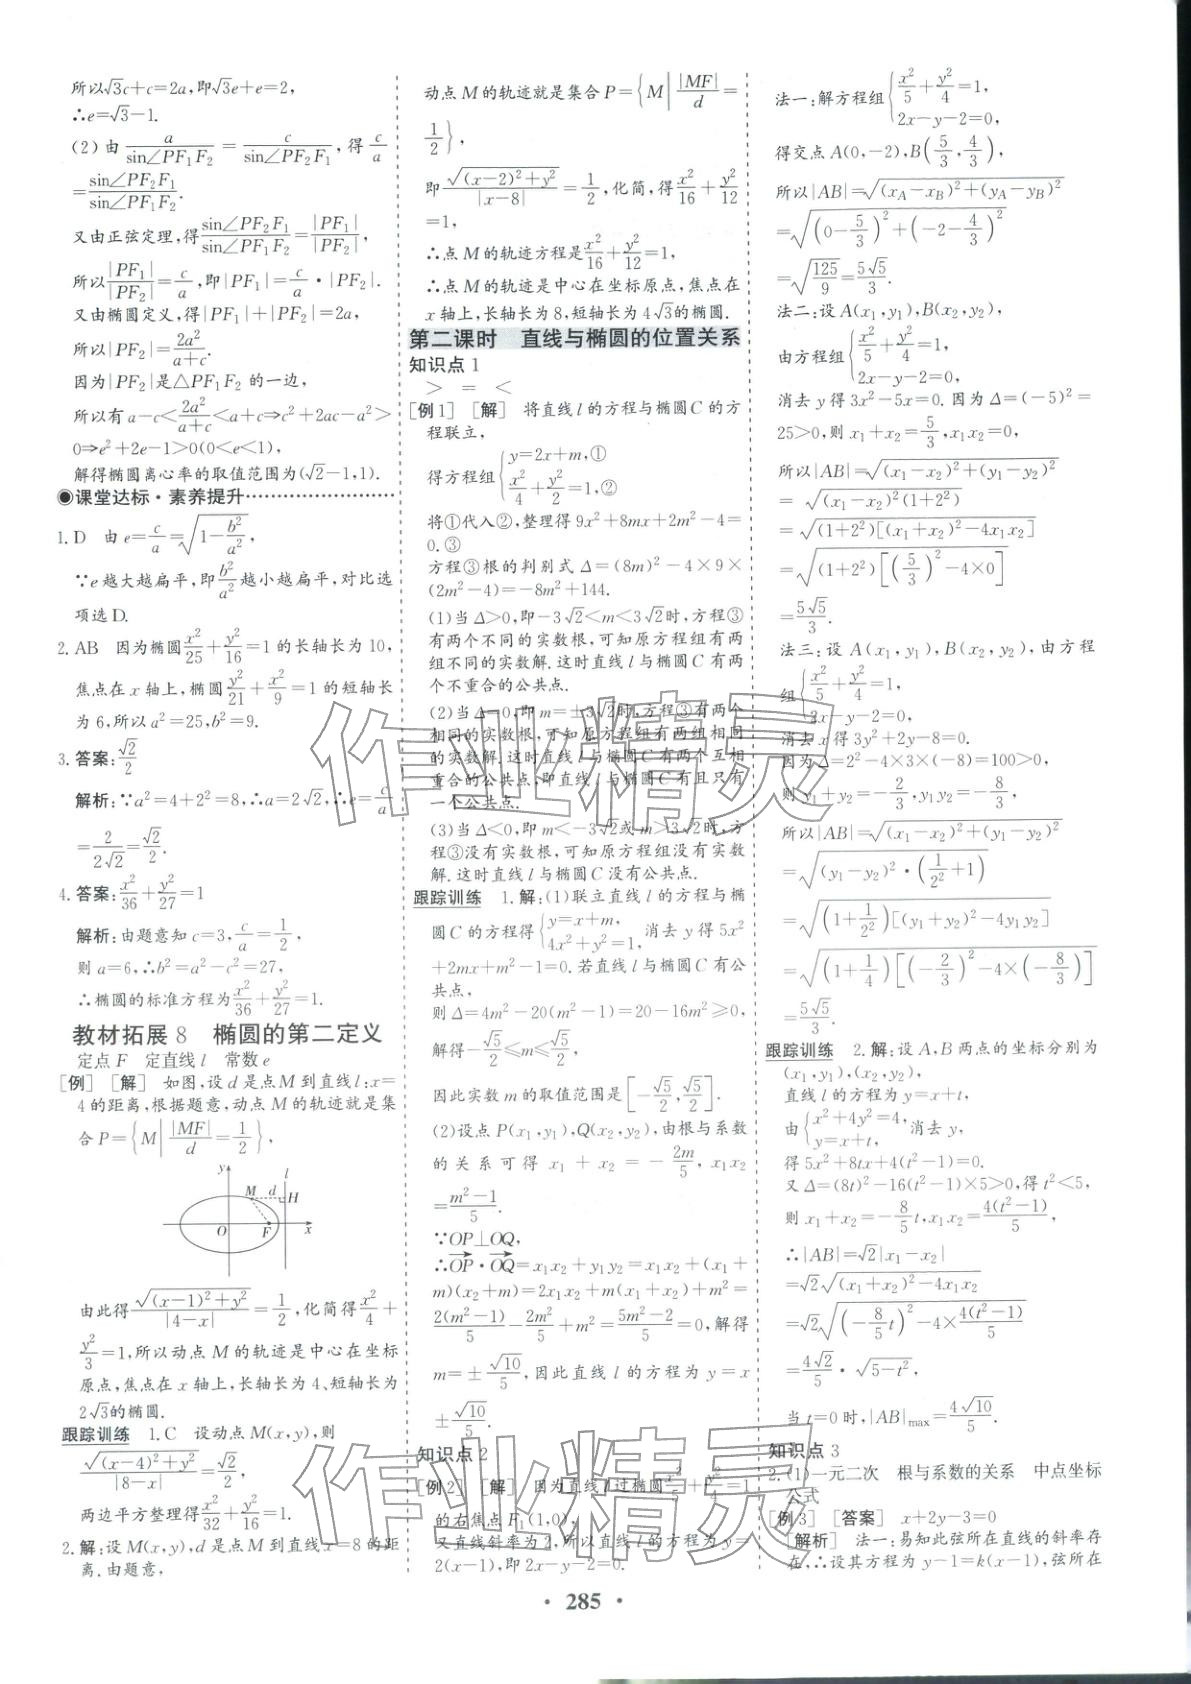 所以√3c+c=2a,即√3e+e=2,
∴e=√3-1.
(2)由 a/sin∠PF₁F₂ = c/sin∠PF₂F₁,得 c/a
= sin∠PF₂F₁/sin∠PF₁F₂.
又由正弦定理,得 sin∠PF₂F₁/sin∠PF₁F₂ = |PF₁|/|PF₂|,
所以 |PF₁|/|PF₂| = c/a,即|PF₁| = c/a · |PF₂|.
又由椭圆定义,得|PF₁|+|PF₂|=2a,
所以|PF₂| = 2a²/(a+c).
因为|PF₂|是△PF₁F₂ 的一边,
所以有 a-c< 2a²/(a+c) <a+c⇒c²+2ac-a²>
0⇒e²+2e-1>0(0<e<1),
解得椭圆离心率的取值范围为(√2-1,1).
◉课堂达标·素养提升
1. D 由 e=c/a=√(1-b²/a²),
∵e越大越扁平,即 b²/a² 越小越扁平,对比选
项选D.
2. AB 因为椭圆 x²/25+y²/16=1 的长轴长为10,
焦点在 x 轴上,椭圆 y²/21+x²/9=1 的短轴长
为6,所以 a²=25,b²=9.
3. 答案: √2/2
解析:∵a²=4+2²=8,∴a=2√2,∴e=c/a
=2/(2√2)=√2/2.
4. 答案: x²/36+y²/27=1
解析:由题意知 c=3,c/a=1/2,
则 a=6,∴b²=a²-c²=27,
∴椭圆的标准方程为 x²/36+y²/27=1.
教材拓展8 椭圆的第二定义
定点 F 定直线 l 常数 e
[例] [解] 如图,设 d 是点 M 到直线 l:x=
4 的距离,根据题意,动点 M 的轨迹就是集
合 P={M| |MF|/d=1/2},
y l
M d H
O F x
由此得 √((x-1)²+y²)/|4-x|=1/2,化简得 x²/4+
y²/3=1,所以动点 M 的轨迹是中心在坐标
原点,焦点在 x 轴上,长轴长为4、短轴长为
2√3的椭圆.
跟踪训练 1. C 设动点 M(x,y),则
√((x-4)²+y²)/|8-x|=√2/2,
两边平方整理得 x²/32+y²/16=1.
2. 解:设 M(x,y),d 是点 M 到直线 x=8 的距
离.由题意,
动点 M 的轨迹就是集合 P={M| |MF|/d=
1/2},
即 √((x-2)²+y²)/|x-8|=1/2,化简,得 x²/16+y²/12
=1,
∴点 M 的轨迹方程是 x²/16+y²/12=1,
∴点 M 的轨迹是中心在坐标原点,焦点在
x 轴上,长轴长为8,短轴长为4√3的椭圆.
第二课时 直线与椭圆的位置关系
知识点1
> = <
[例1] [解] 将直线 l 的方程与椭圆 C 的方
程联立,
得方程组{y=2x+m,①
x²/4+y²/2=1,②
将①代入②,整理得 9x²+8mx+2m²-4=
0.③
方程③根的判别式 Δ=(8m)²-4×9×
(2m²-4)=-8m²+144.
(1)当 Δ>0,即-3√2<m<3√2时,方程③
有两个不同的实数根,可知原方程组有两
组不同的实数解.这时直线 l 与椭圆 C 有两
个不重合的公共点.
(2)当 Δ=0,即 m=±3√2时,方程③有两个
相同的实数根,可知原方程组有两组相同
的实数解.这时直线 l 与椭圆 C 有两个互相
重合的公共点,即直线 l 与椭圆 C 有且只有
一个公共点.
(3)当 Δ<0,即 m<-3√2或 m>3√2时,方
程③没有实数根,可知原方程组没有实数
解.这时直线 l 与椭圆 C 没有公共点.
跟踪训练 1. 解:(1)联立直线 l 的方程与椭
圆 C 的方程得{y=x+m, 4x²+y²=1, 消去 y 得 5x²
+2mx+m²-1=0.若直线 l 与椭圆 C 有公
共点,
则 Δ=4m²-20(m²-1)=20-16m²≥0,
解得-√5/2≤m≤√5/2,
因此实数 m 的取值范围是[-√5/2,√5/2].
(2)设点 P(x₁,y₁),Q(x₂,y₂),由根与系数
的关系可得 x₁+x₂=-2m/5,x₁x₂
=(m²-1)/5.
∵OP⊥OQ,
∴OP·OQ=x₁x₂+y₁y₂=x₁x₂+(x₁+
m)(x₂+m)=2x₁x₂+m(x₁+x₂)+m²=
2(m²-1)/5-2m²/5+m²=(5m²-2)/5=0,解得
m=±√10/5,因此直线 l 的方程为 y=x
±√10/5.
知识点2
[例2] [解] 因为直线 l 过椭圆 x²/5+y²/4=1
的右焦点 F₁(1,0),
又直线斜率为2,所以直线 l 的方程为 y=
2(x-1),即 2x-y-2=0.
法一:解方程组{x²/5+y²/4=1,
2x-y-2=0,
得交点 A(0,-2),B(5/3,4/3),
所以|AB|=√((x_A-x_B)²+(y_A-y_B)²)
=√((0-5/3)²+(-2-4/3)²)
=√(125/9)=5√5/3.
法二:设 A(x₁,y₁),B(x₂,y₂),
由方程组{x²/5+y²/4=1,
2x-y-2=0,
消去 y 得 3x²-5x=0.因为 Δ=(-5)²=
25>0,则 x₁+x₂=5/3,x₁x₂=0,
所以|AB|=√((x₁-x₂)²+(y₁-y₂)²)
=√((x₁-x₂)²(1+2²))
=√((1+2²)[(x₁+x₂)²-4x₁x₂])
=√((1+2²)[(5/3)²-4×0])
=5√5/3.
法三:设 A(x₁,y₁),B(x₂,y₂),由方程
组{x²/5+y²/4=1,
2x-y-2=0,
消去 x 得 3y²+2y-8=0.
因为 Δ=2²-4×3×(-8)=100>0,
则 y₁+y₂=-2/3,y₁y₂=-8/3,
所以|AB|=√((x₁-x₂)²+(y₁-y₂)²)
=√((y₁-y₂)²·(1/2²+1))
=√((1+1/2²)[(y₁+y₂)²-4y₁y₂])
=√((1+1/4)[(-2/3)²-4×(-8/3)])
=5√5/3.
跟踪训练 2. 解:设 A,B 两点的坐标分别为
(x₁,y₁),(x₂,y₂),
直线 l 的方程为 y=x+t,
由{x²+4y²=4, y=x+t, 消去 y,
得 5x²+8tx+4(t²-1)=0.
又 Δ=(8t)²-16(t²-1)×5>0,得 t²<5,
则 x₁+x₂=-8/5t,x₁x₂=4(t²-1)/5,
∴|AB|=√2|x₁-x₂|
=√2√((x₁+x₂)²-4x₁x₂)
=√2√((-8/5t)²-4×4(t²-1)/5)
=4√2/5·√(5-t²),
当 t=0 时,|AB|max=4√10/5.
知识点3
2. (1)一元二次 根与系数的关系 中点坐标
公式
[例3] [答案] x+2y-3=0
[解析] 法一:易知此弦所在直线的斜率存
在,∴设其方程为 y-1=k(x-1),弦所在
· 285 ·
作业精灵
作业精灵